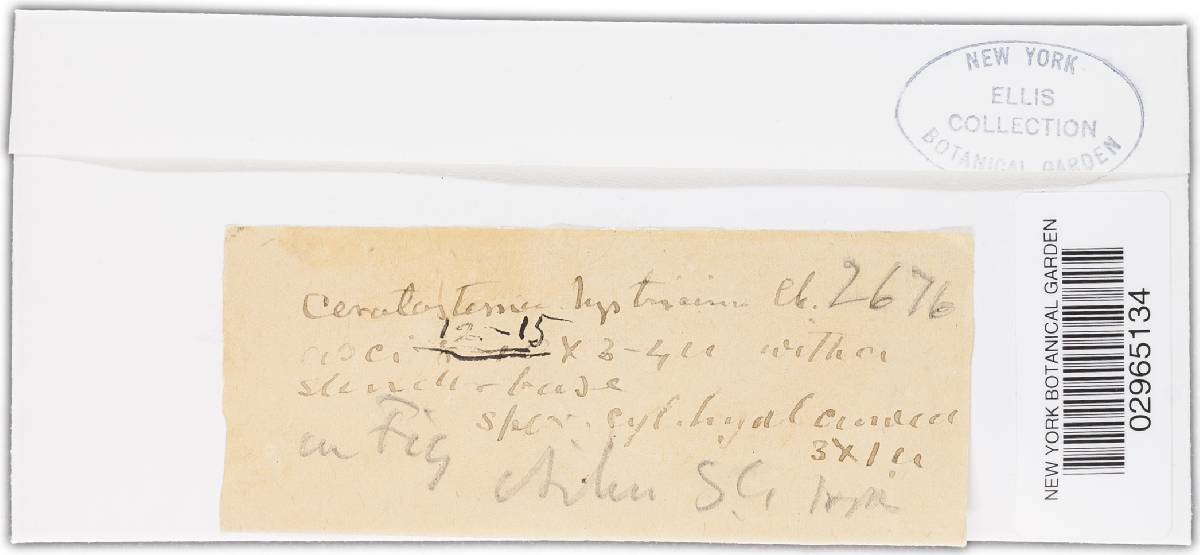 NEW YORK
ELLIS
COLLECTION
BOTANICAL GARDEN
Ck. 2676
12-15
asci x 3-4u with a
slender base
spor. cyl. hyal curved
3x1u
on Fig
Aiken S.C.
NEW YORK BOTANICAL GARDEN
02965134